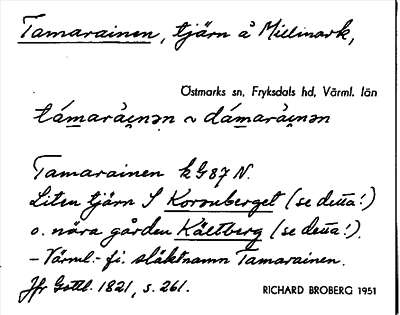 Tamarainen, tjärn å Millmark,
Östmarks sn, Fryksdals hd, Värml. län
támaràinən ~ dámaràinən
Tamarainen kG87 N.
Liten tjärn S Kronberget (se detta!)
o. nära gården Kältberg (se detta!).
– Värml.-fi. släktnamn Tamarainen.
Jfr Gottl. 1821, s. 261.
RICHARD BROBERG 1951